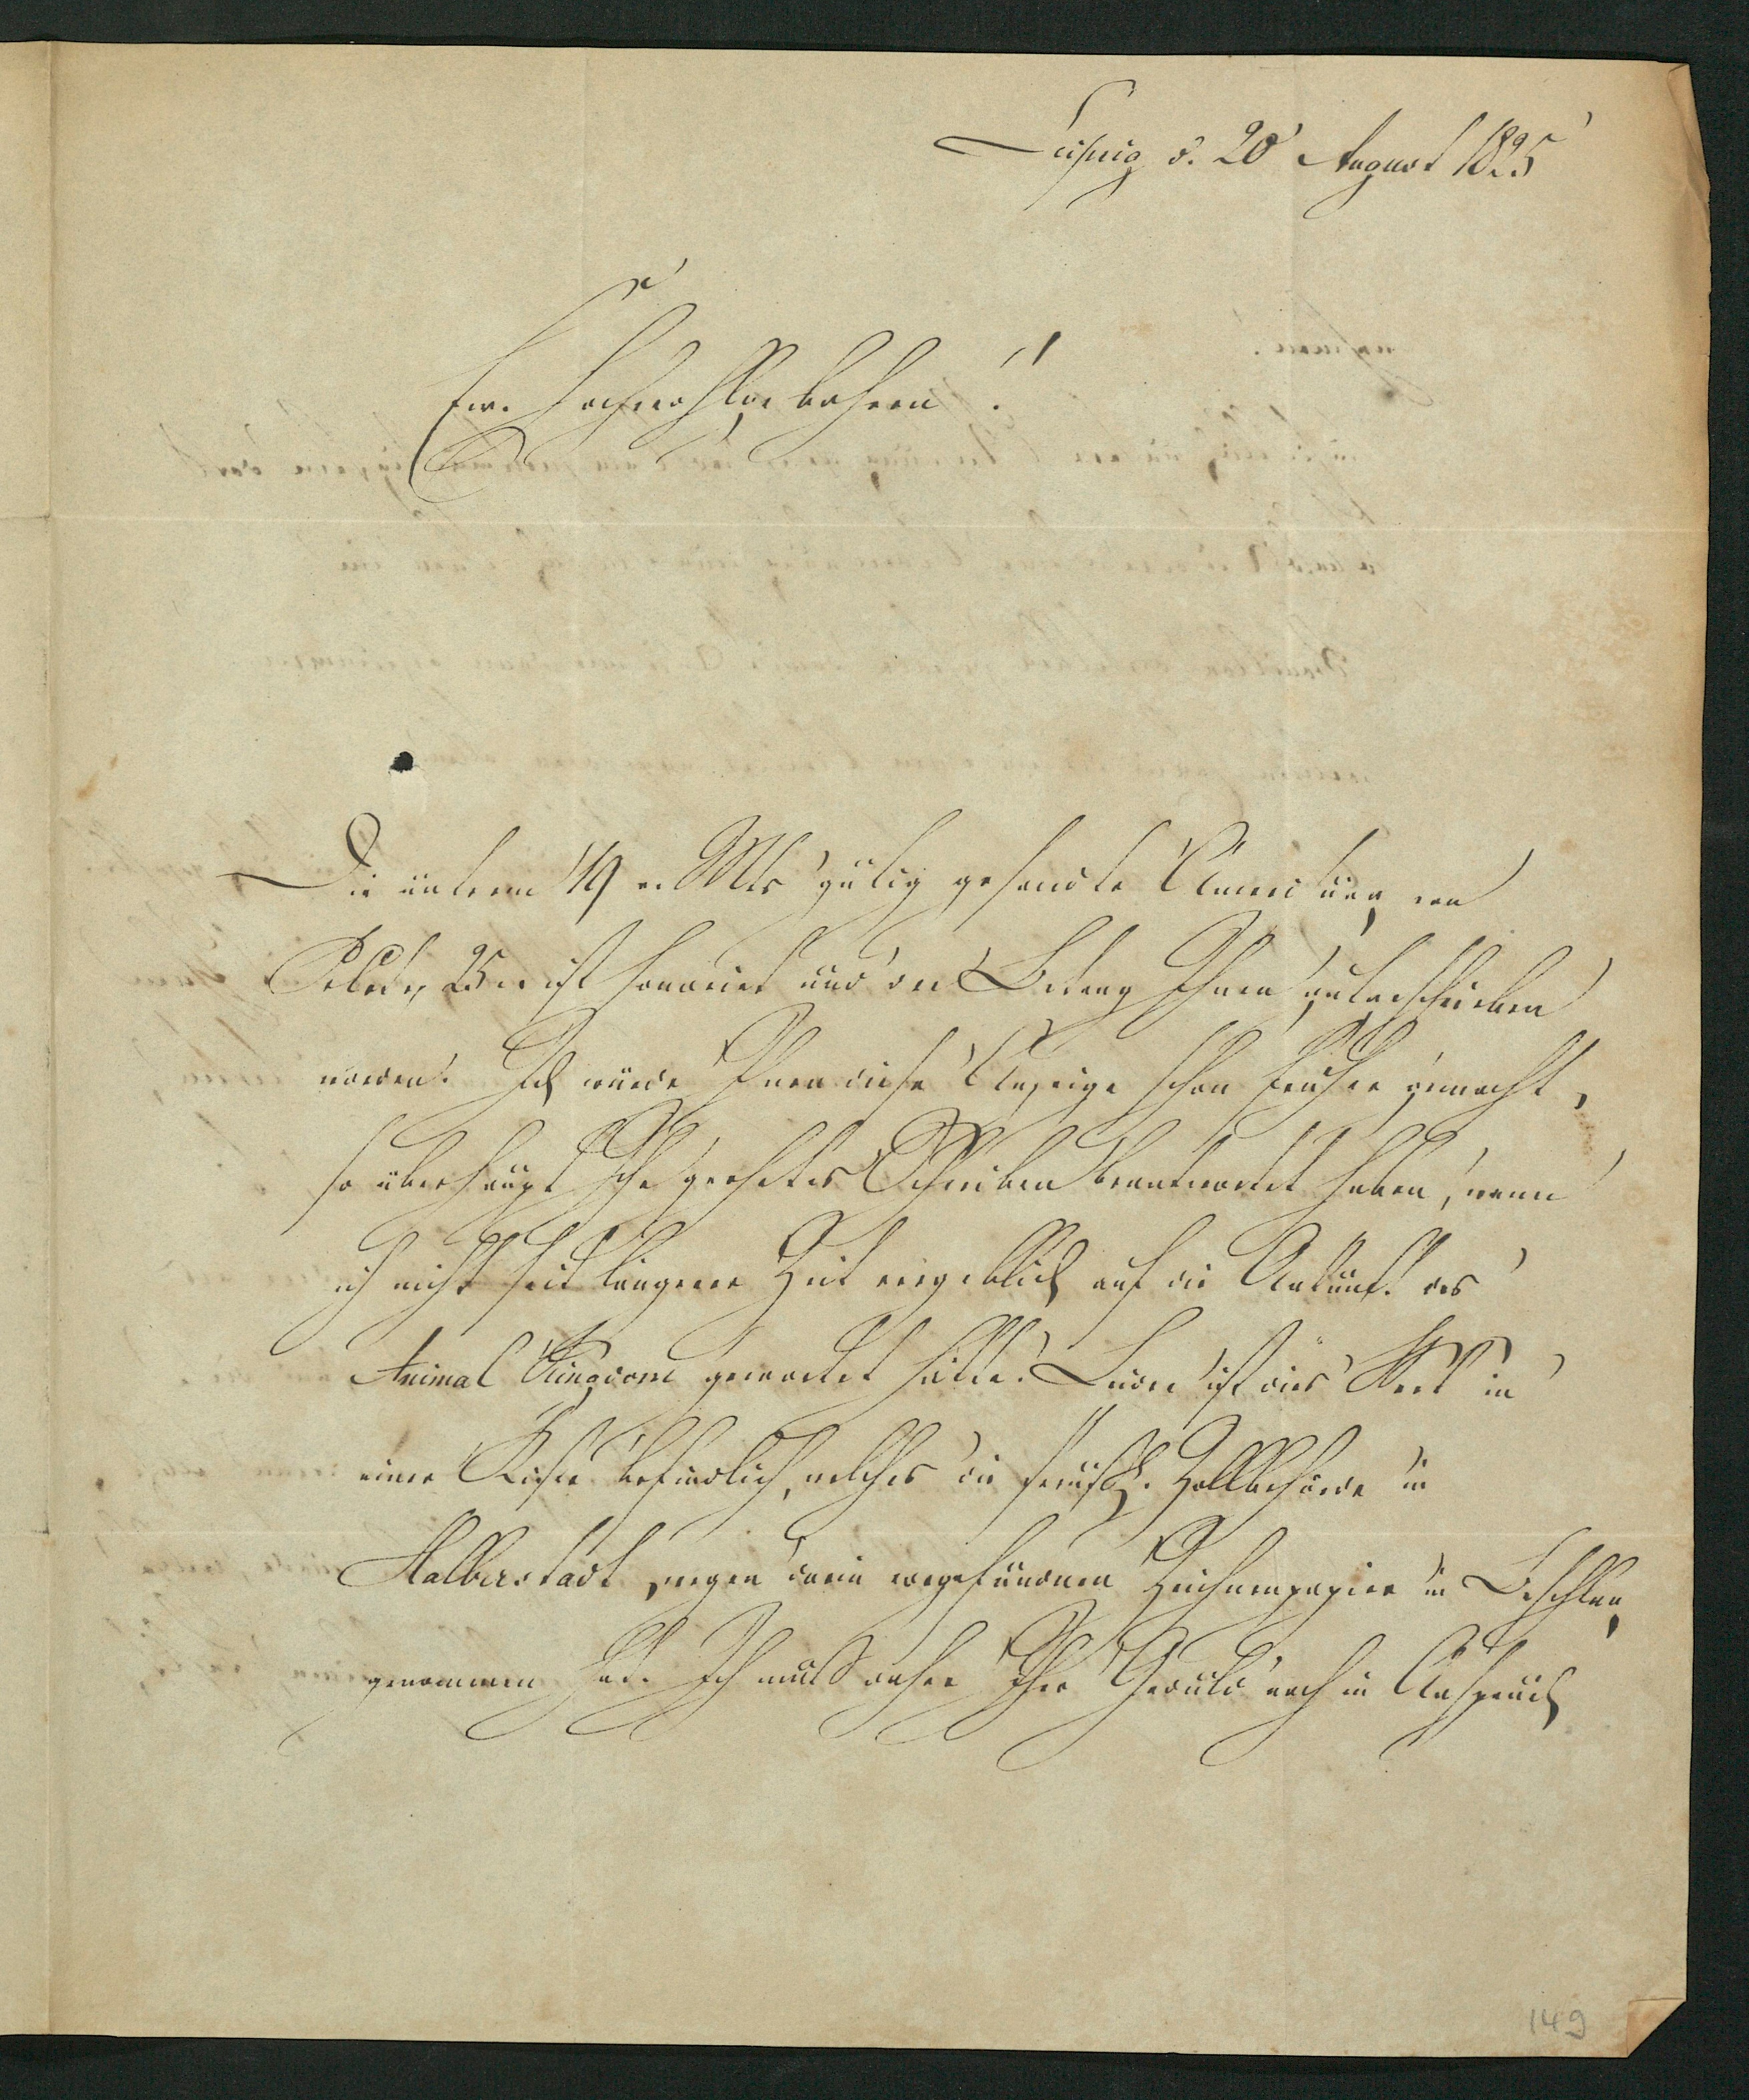 Leipzig d. 20 August 1825
Ew. Hochwohlgebohren!
Die unterm 19 v. Mts gütig gesandte Anweisung von
25 ist honorirt und der Betrag Ihnen gutgeschrieben
worden. Ich würde Ihnen diese Anzeige schon früher gemacht,
so überhaupt Ihr geehrtes Schreiben beantwortet haben, wenn
ich nicht seit längerer Zeit vergeblich auf die Ankunft des
Animal Kingdom gewartet hätte. Leider ist dies Werk in
einer Kiste befindlich, welches die preuß. Zollbehörde in
Halberstadt wegen darin vorgefundnen Zeichnenpapier in Beschlag
genommen hat. Ich muß daher Ihre Geduld noch in Anspruch
149